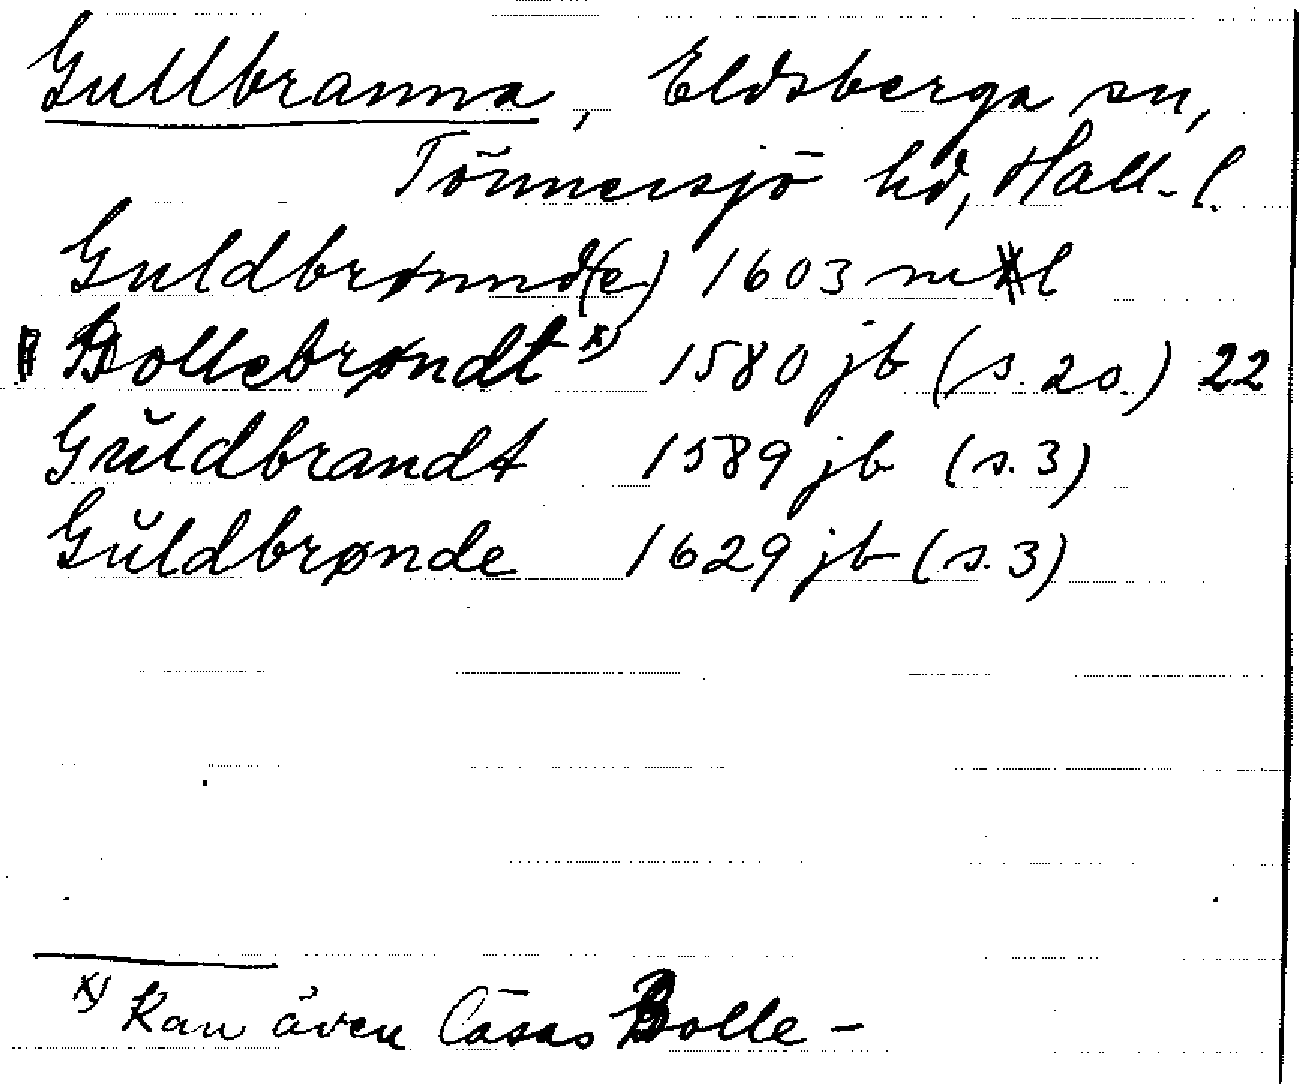 Gullbranna, Eldsberga sn,
Tönnersjö hd, Hall. l.
Guldbrønnd(e) 1603 ml
Bollebrøndt x) 1580 jb (s. 20.) 22
Gŭldbrandt 1589 jb (s. 3)
Gŭldbrønde 1629 jb (s. 3)
x) Kan även läsas Bolle-